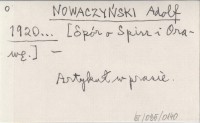 o NOWACZYŃSKI Adolf
1920... [Spór o Spisz i Ora-
wę.] —
Artykuł w prasie.